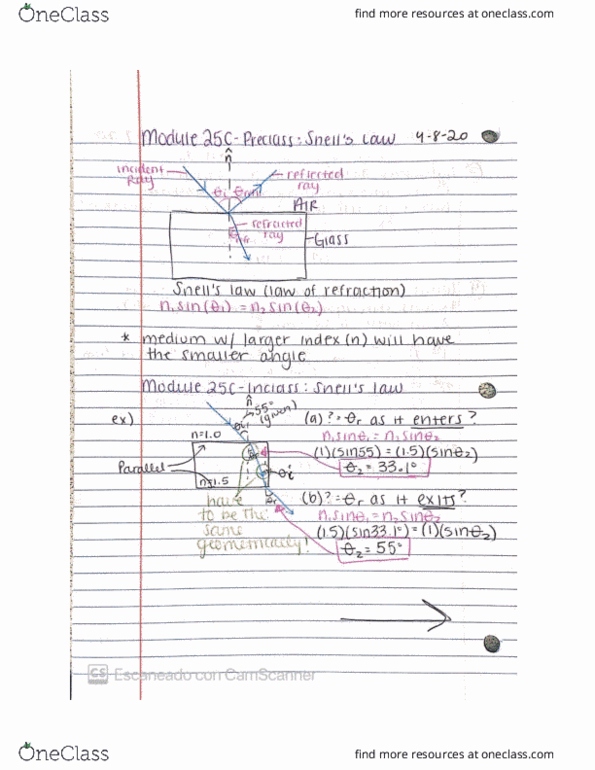 OneClass
find more resources at oneclass.com
Module 25C-Preclass: Snell's Law 4-8-20
n̂
incident Ray
reflected ray
θi
AIR
refracted ray
Glass
Snell's law (law of refraction)
n₁sin(θ₁) = n₂sin(θ₂)
* medium w/ larger index (n) will have
the smaller angle
Module 25C-Inclass: Snell's law
n̂
ex)
55° (given)
θi
(a) ? = θr as it enters?
n=1.0
n₁sinθ₁ = n₂sinθ₂
(1)(sin55) = (1.5)(sinθ₂)
Parallel
θi
θ₂ = 33.1°
n=1.5
θr
(b) ? = θr as it exits?
have
to be the
same
geometrically!
n₁sinθ₁ = n₂sinθ₂
(1.5)(sin33.1°) = (1)(sinθ₂)
θ₂ = 55°
CS Escaneado con CamScanner
OneClass
find more resources at oneclass.com